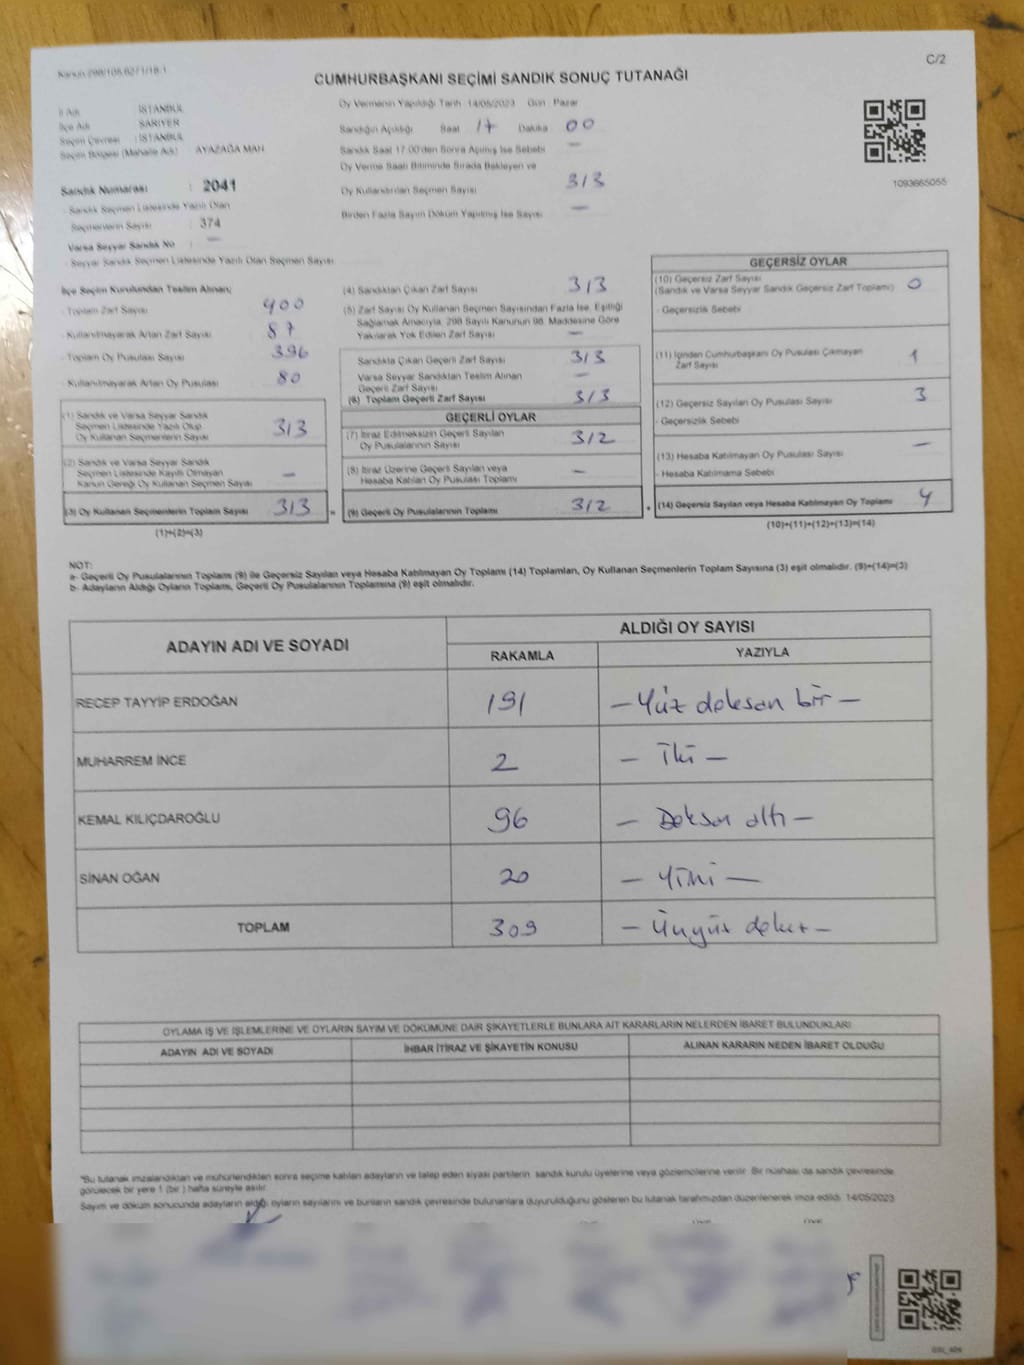 Kanun:298/105,6271/18-1
C/2
CUMHURBAŞKANI SEÇİMİ SANDIK SONUÇ TUTANAĞI
İl Adı : İSTANBUL
İlçe Adı : SARIYER
Seçim Çevresi : İSTANBUL
Seçim Bölgesi (Mahalle Adı) AYAZAĞA MAH
Sandık Numarası : 2041
- Sandık Seçmen Listesinde Yazılı Olan
Seçmenlerin Sayısı : 374
Varsa Seyyar Sandık No : —
- Seyyar Sandık Seçmen Listesinde Yazılı Olan Seçmen Sayısı
Oy Vermenin Yapıldığı Tarih 14/05/2023 Gün : Pazar
Sandığın Açıldığı Saat 17 Dakika 00
Sandık Saat 17.00'den Sonra Açılmış İse Sebebi —
Oy Verme Saati Bitiminde Sırada Bekleyen ve
Oy Kullandırılan Seçmen Sayısı 313
Birden Fazla Sayım Döküm Yapılmış İse Sayısı —
1093665055
İlçe Seçim Kurulundan Teslim Alınan;
- Toplam Zarf Sayısı 400
- Kullanılmayarak Artan Zarf Sayısı 87
- Toplam Oy Pusulası Sayısı 396
- Kullanılmayarak Artan Oy Pusulası 80
(1) Sandık ve Varsa Seyyar Sandık
Seçmen Listesinde Yazılı Olup
Oy Kullanan Seçmenlerin Sayısı 313
(2) Sandık ve Varsa Seyyar Sandık
Seçmen Listesinde Kayıtlı Olmayan
Kanun Gereği Oy Kullanan Seçmen Sayısı —
(3) Oy Kullanan Seçmenlerin Toplam Sayısı 313
(1)+(2)=(3)
(4) Sandıktan Çıkan Zarf Sayısı 313
(5) Zarf Sayısı Oy Kullanan Seçmen Sayısından Fazla İse, Eşitliği
Sağlamak Amacıyla, 298 Sayılı Kanunun 98. Maddesine Göre
Yakılarak Yok Edilen Zarf Sayısı —
Sandıkta Çıkan Geçerli Zarf Sayısı 313
Varsa Seyyar Sandıktan Teslim Alınan
Geçerli Zarf Sayısı —
(6) Toplam Geçerli Zarf Sayısı 313
GEÇERLİ OYLAR
(7) İtiraz Edilmeksizin Geçerli Sayılan
Oy Pusulalarının Sayısı 312
(8) İtiraz Üzerine Geçerli Sayılan veya
Hesaba Katılan Oy Pusulası Toplamı —
(9) Geçerli Oy Pusulalarının Toplamı 312
GEÇERSİZ OYLAR
(10) Geçersiz Zarf Sayısı
(Sandık ve Varsa Seyyar Sandık Geçersiz Zarf Toplamı) 0
- Geçersizlik Sebebi
(11) İçinden Cumhurbaşkanı Oy Pusulası Çıkmayan
Zarf Sayısı 1
(12) Geçersiz Sayılan Oy Pusulası Sayısı 3
- Geçersizlik Sebebi
(13) Hesaba Katılmayan Oy Pusulası Sayısı —
- Hesaba Katılmama Sebebi
(14) Geçersiz Sayılan veya Hesaba Katılmayan Oy Toplamı 4
(10)+(11)+(12)+(13)=(14)
NOT:
a- Geçerli Oy Pusulalarının Toplamı (9) ile Geçersiz Sayılan veya Hesaba Katılmayan Oy Toplamı (14) Toplamları, Oy Kullanan Seçmenlerin Toplam Sayısına (3) eşit olmalıdır. (9)+(14)=(3)
b- Adayların Aldığı Oyların Toplamı, Geçerli Oy Pusulalarının Toplamına (9) eşit olmalıdır.
ADAYIN ADI VE SOYADI ALDIĞI OY SAYISI
RAKAMLA YAZIYLA
RECEP TAYYİP ERDOĞAN 191 — Yüz doksan bir —
MUHARREM İNCE 2 — İki —
KEMAL KILIÇDAROĞLU 96 — Doksan altı —
SİNAN OĞAN 20 — Yirmi —
TOPLAM 309 — Üçyüz dokuz —
OYLAMA İŞ VE İŞLEMLERİNE VE OYLARIN SAYIM VE DÖKÜMÜNE DAİR ŞİKAYETLERLE BUNLARA AİT KARARLARIN NELERDEN İBARET BULUNDUKLARI
ADAYIN ADI VE SOYADI İHBAR İTİRAZ VE ŞİKAYETİN KONUSU ALINAN KARARIN NEDEN İBARET OLDUĞU
*Bu tutanak imzalandıktan ve mühürlendikten sonra seçime katılan adayların ve talep eden siyasi partilerin sandık kurulu üyelerine veya gözlemcilerine verilir. Bir nüshası da sandık çevresinde
görülecek bir yere 1 (bir ) hafta süreyle asılır.
Sayım ve döküm sonucunda adayların aldığı oyların sayılarını ve bunların sandık çevresinde bulunanlara duyurulduğunu gösteren bu tutanak tarafımızdan düzenlenerek imza edildi. 14/05/2023